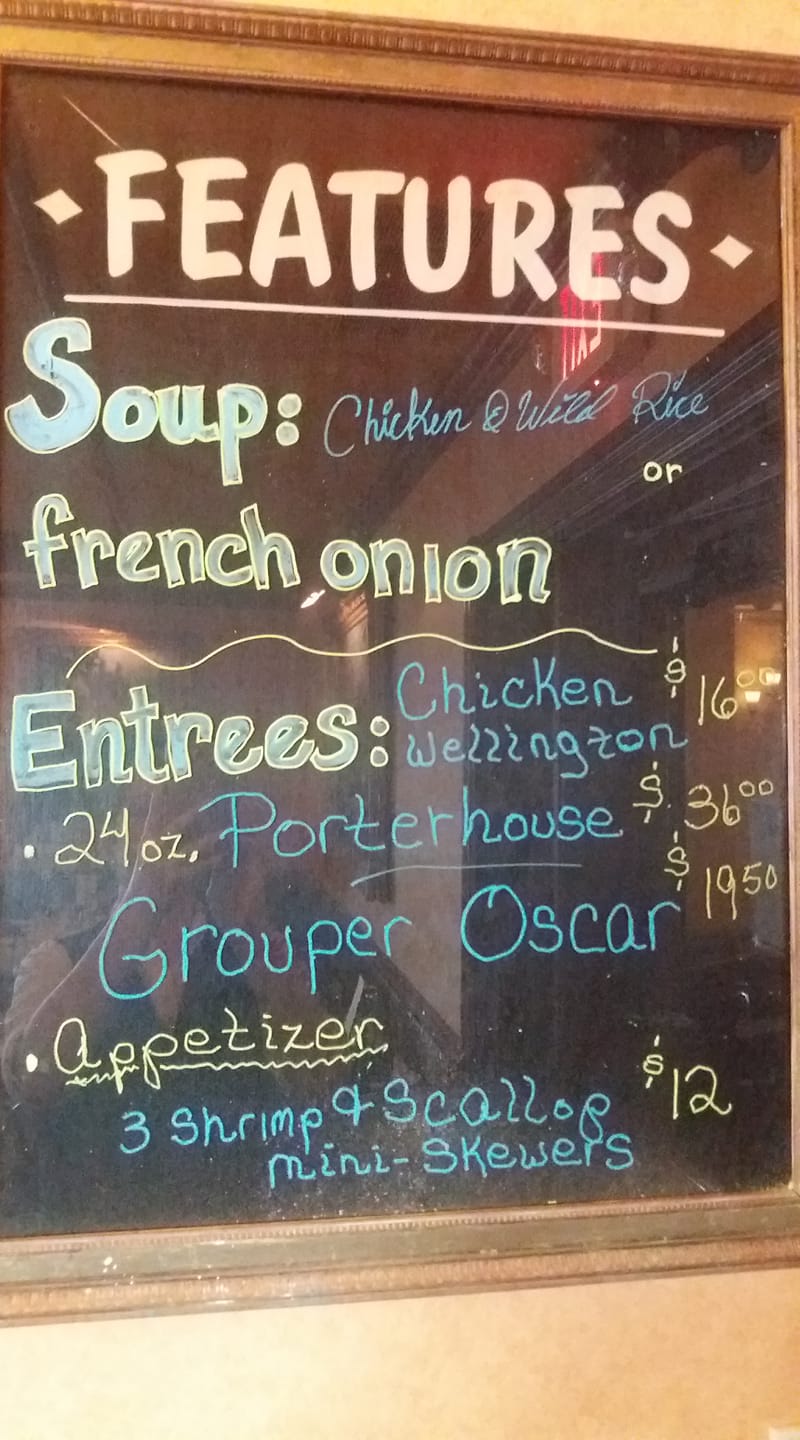 FEATURES
Soup: Chicken & Wild Rice
or
french onion
Entrees: Chicken Wellington $16.00
• 24 oz. Porterhouse $36.00
Grouper Oscar $19.50
• Appetizer
3 Shrimp & Scallop $12
mini-skewers